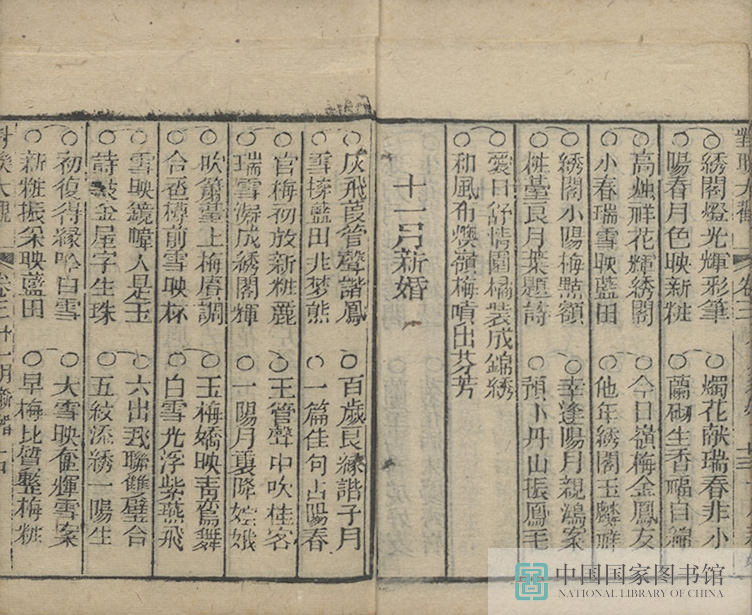 對聯大觀 卷三
綉閣燈光輝彩筆 燭花献瑞春非小
陽春月色映新粧 蘭砌生香福自綿
高燭祥花輝綉閣 今日嶺梅金鳳友
小春瑞雪映藍田 他年綉閣玉麟祥
綉閣小陽梅點額 幸逢陽月親鴻案
粧臺良月葉題詩 預卜丹山振鳳毛
愛日舒情園橘裝成錦綉
和風布燠嶺梅噴出芬芳
十一月新婚
灰飛葭管聲諧鳳 百歲良緣諧子月
雪擁藍田兆梦熊 一篇佳句占陽春
官梅初放新粧麗 玉管聲中吹桂客
瑞雪凝成綉閣輝 一陽月裏降嫦娥
吹簫臺上梅唇調 玉梅嬌映青鸞舞
合巹樽前雪映杯 白雪光浮紫燕飛
雪映鏡幃人是玉 六出我聯雙璧合
詩裝金屋字生珠 五紋添綉一陽生
初復得緣吟白雪 大雪映奩輝雪案
新粧振采映藍田 早梅比質整梅粧
對聯大觀 卷三 十一月新婚 十四
中国国家图书馆
NATIONAL LIBRARY OF CHINA